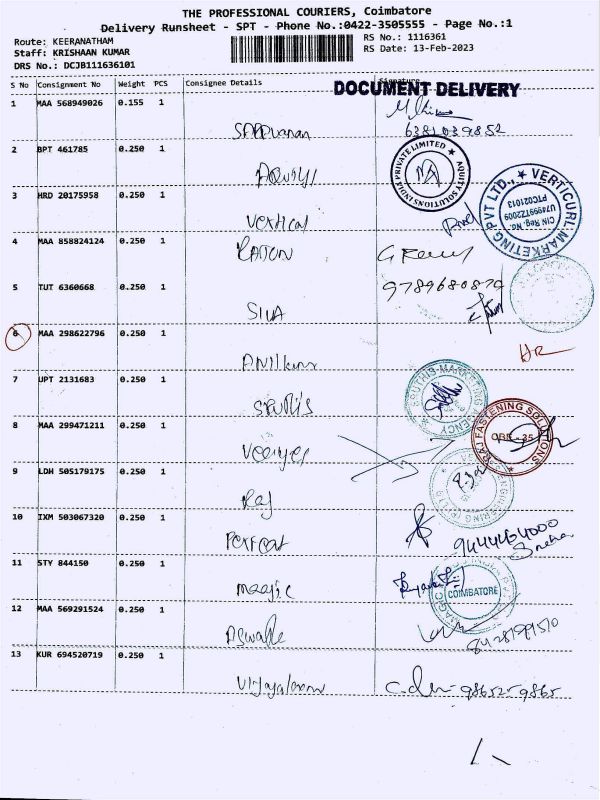 THE PROFESSIONAL COURIERS, Coimbatore
Delivery Runsheet - SPT - Phone No.:0422-3505555 - Page No.:1
Route: KEERANATHAM
Staff: KRISHAAN KUMAR
DRS No.: DCJB111636101
RS No.: 1116361
RS Date: 13-Feb-2023
S No Consignment No Weight PCS Consignee Details Signature
DOCUMENT DELIVERY
1 MAA 568949026 0.155 1
6381039852
2 BPT 461785 0.250 1
AQUITY SOLUTIONS INDIA PRIVATE LIMITED
3 HRD 20175958 0.250 1
Vertical
VERTICURL MARKETING PVT LTD.,
CIN Reg. No.
U74999TZ2009
PTC021013
4 MAA 858824124 0.250 1
5 TUT 6360668 0.250 1
9789680879
SIVA
6 MAA 298622796 0.250 1
HR
Anilkumar
7 UPT 2131683 0.250 1
SRUTHIS MARKETING AGENCY
Sruthis
8 MAA 299471211 0.250 1
RAJ FASTENING SOLUTIONS
CBE - 35
9 LDH 505179175 0.250 1
Raj
10 IXM 503067320 0.250 1
9444464000
Sneha
Perfect
11 STY 844150 0.250 1
COIMBATORE
Magic
12 MAA 569291524 0.250 1
Aswathe
13 KUR 694520719 0.250 1
9865259865